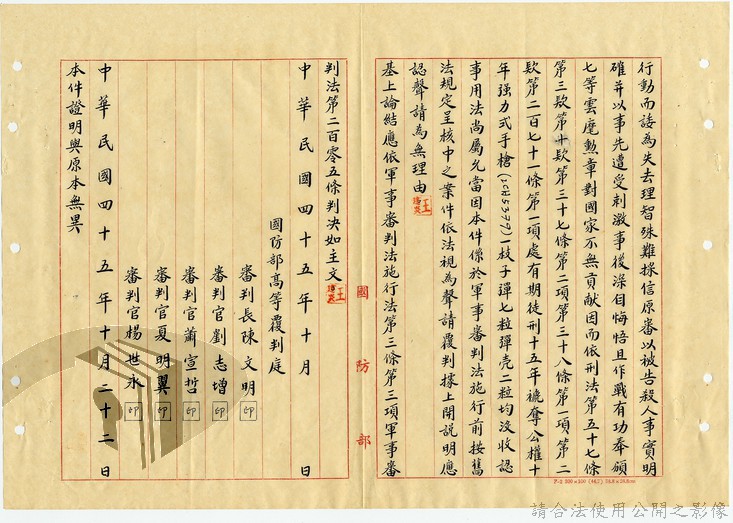 行動而諉為失去理智殊難採信原審以被告殺人事實明
確并以事先遭受刺激事後深自悔悟且作戰有功奉頒
七等雲麾勳章對國家不無貢獻因而依刑法第五十七條
第三款第十款第三十七條第二項第三十八條第一項第二
款第二百七十一條第一項處有期徒刑十五年褫奪公權十
年强力式手槍一枝子彈七粒彈壳二粒均沒收認
事用法尚屬允當因本件係於軍事審判法施行前按舊
法規定呈核中之案件依法視為聲請覆判據上開説明應
認聲請為無理由
基上論結應依軍事審判法施行法第三條第三項軍事審
國防部
判法第二百零五條判決如主文
中華民國四十五年十月 日
國防部高等覆判庭
審判長陳文明 印
審判官劉志增 印
審判官蕭宣哲 印
審判官夏明翼 印
審判官楊世永 印
中華民國四十五年十月二十二日
本件證明與原本無異
請合法使用公開之影像